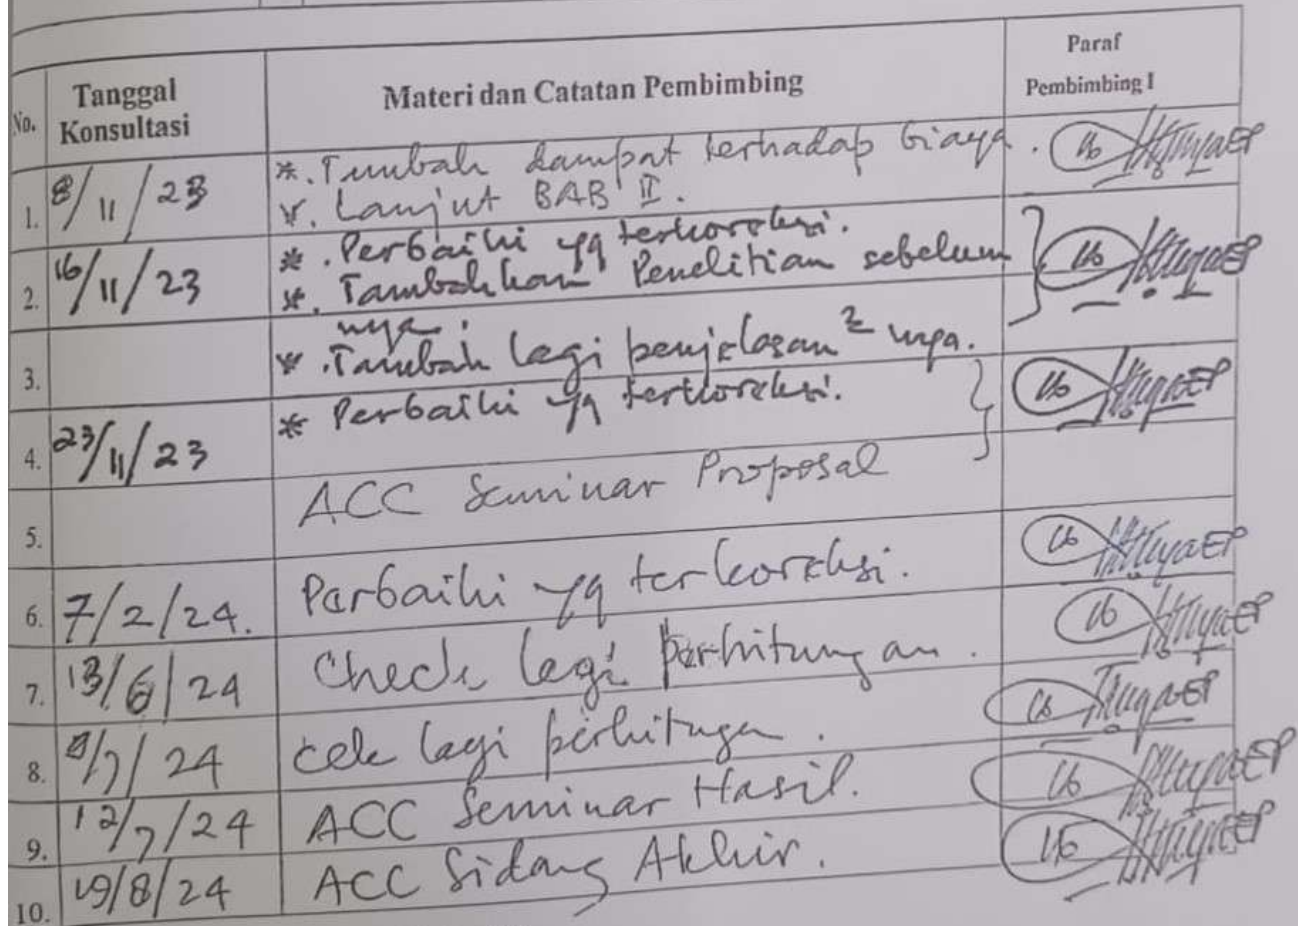 No. Tanggal Konsultasi Materi dan Catatan Pembimbing Paraf Pembimbing I
1. 8/11/23 *. Tambah dampak terhadap biaya.
*. Lanjut BAB II.
2. 16/11/23 *. Perbaiki yg terkoreksi.
*. Tambahkan Penelitian sebelum
nya.
3. *. Tambah lagi penjelasan² nya.
4. 23/11/23 * Perbaiki yg terkoreksi.
5. ACC Seminar Proposal
6. 7/2/24. Perbaiki yg terkoreksi.
7. 13/6/24 Check lagi perhitungan.
8. 9/7/24 Cek lagi perhitugan.
9. 12/7/24 ACC Seminar Hasil.
10. 19/8/24 ACC Sidang Akhir.